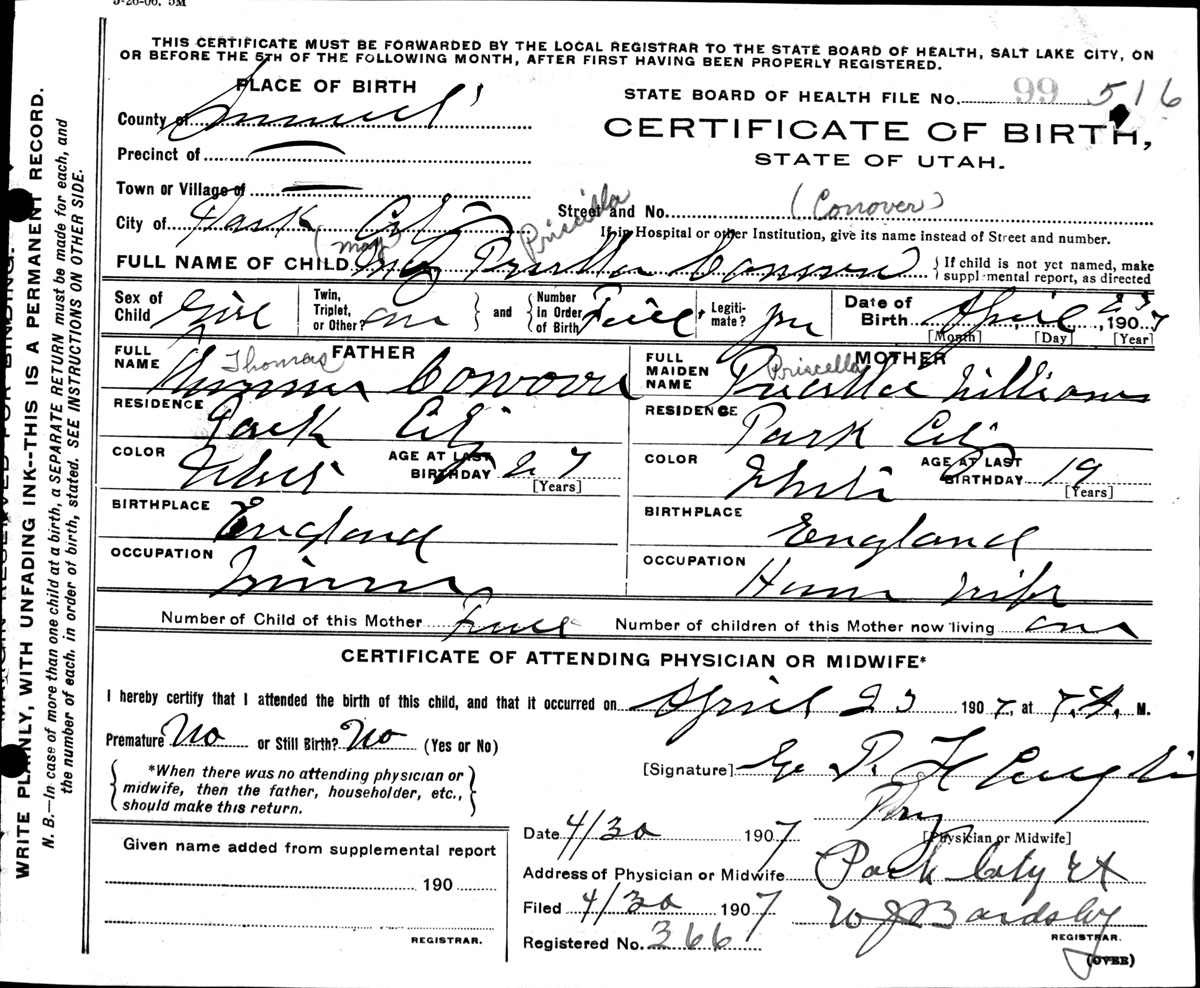 5-26-06. 5M
THIS CERTIFICATE MUST BE FORWARDED BY THE LOCAL REGISTRAR TO THE STATE BOARD OF HEALTH, SALT LAKE CITY, ON
OR BEFORE THE 5TH OF THE FOLLOWING MONTH, AFTER FIRST HAVING BEEN PROPERLY REGISTERED.
PLACE OF BIRTH
County of Summit
Precinct of
Town or Village of
City of Park City
STATE BOARD OF HEALTH FILE No. 99 516
CERTIFICATE OF BIRTH,
STATE OF UTAH.
Street and No. (Conover)
If in Hospital or other Institution, give its name instead of Street and number.
(May Priscilla
FULL NAME OF CHILD May Priscilla Conover { If child is not yet named, make
supplemental report, as directed
Sex of Child Girl
Twin, Triplet, or Other? one } and { Number in Order of Birth
Legitimate? yes
Date of Birth April 23, 1907
[Month] [Day] [Year]
FATHER
FULL NAME Thomas Thomas
RESIDENCE Park City
COLOR White AGE AT LAST BIRTHDAY 27
[Years]
BIRTHPLACE England
OCCUPATION Miner
MOTHER
FULL MAIDEN NAME Priscella Priscilla Williams
RESIDENCE Park City
COLOR White AGE AT LAST BIRTHDAY 19
[Years]
BIRTHPLACE England
OCCUPATION House wife
Number of Child of this Mother Number of children of this Mother now living one
CERTIFICATE OF ATTENDING PHYSICIAN OR MIDWIFE*
I hereby certify that I attended the birth of this child, and that it occurred on April 23 1907, at 7. A. M.
Premature No or Still Birth? No (Yes or No)
{ *When there was no attending physician or
midwife, then the father, householder, etc.,
should make this return. }
[Signature]
Phy
[Physician or Midwife]
Date 4/30 1907
Address of Physician or Midwife Park City Ut
Filed 4/30 1907 W J Bardsley
REGISTRAR.
Registered No. 366
(OVER)
Given name added from supplemental report
190
REGISTRAR.
MARGIN RESERVED FOR BINDING.
WRITE PLAINLY, WITH UNFADING INK--THIS IS A PERMANENT RECORD.
N. B.—In case of more than one child at a birth, a SEPARATE RETURN must be made for each, and
the number of each, in order of birth, stated. SEE INSTRUCTIONS ON OTHER SIDE.